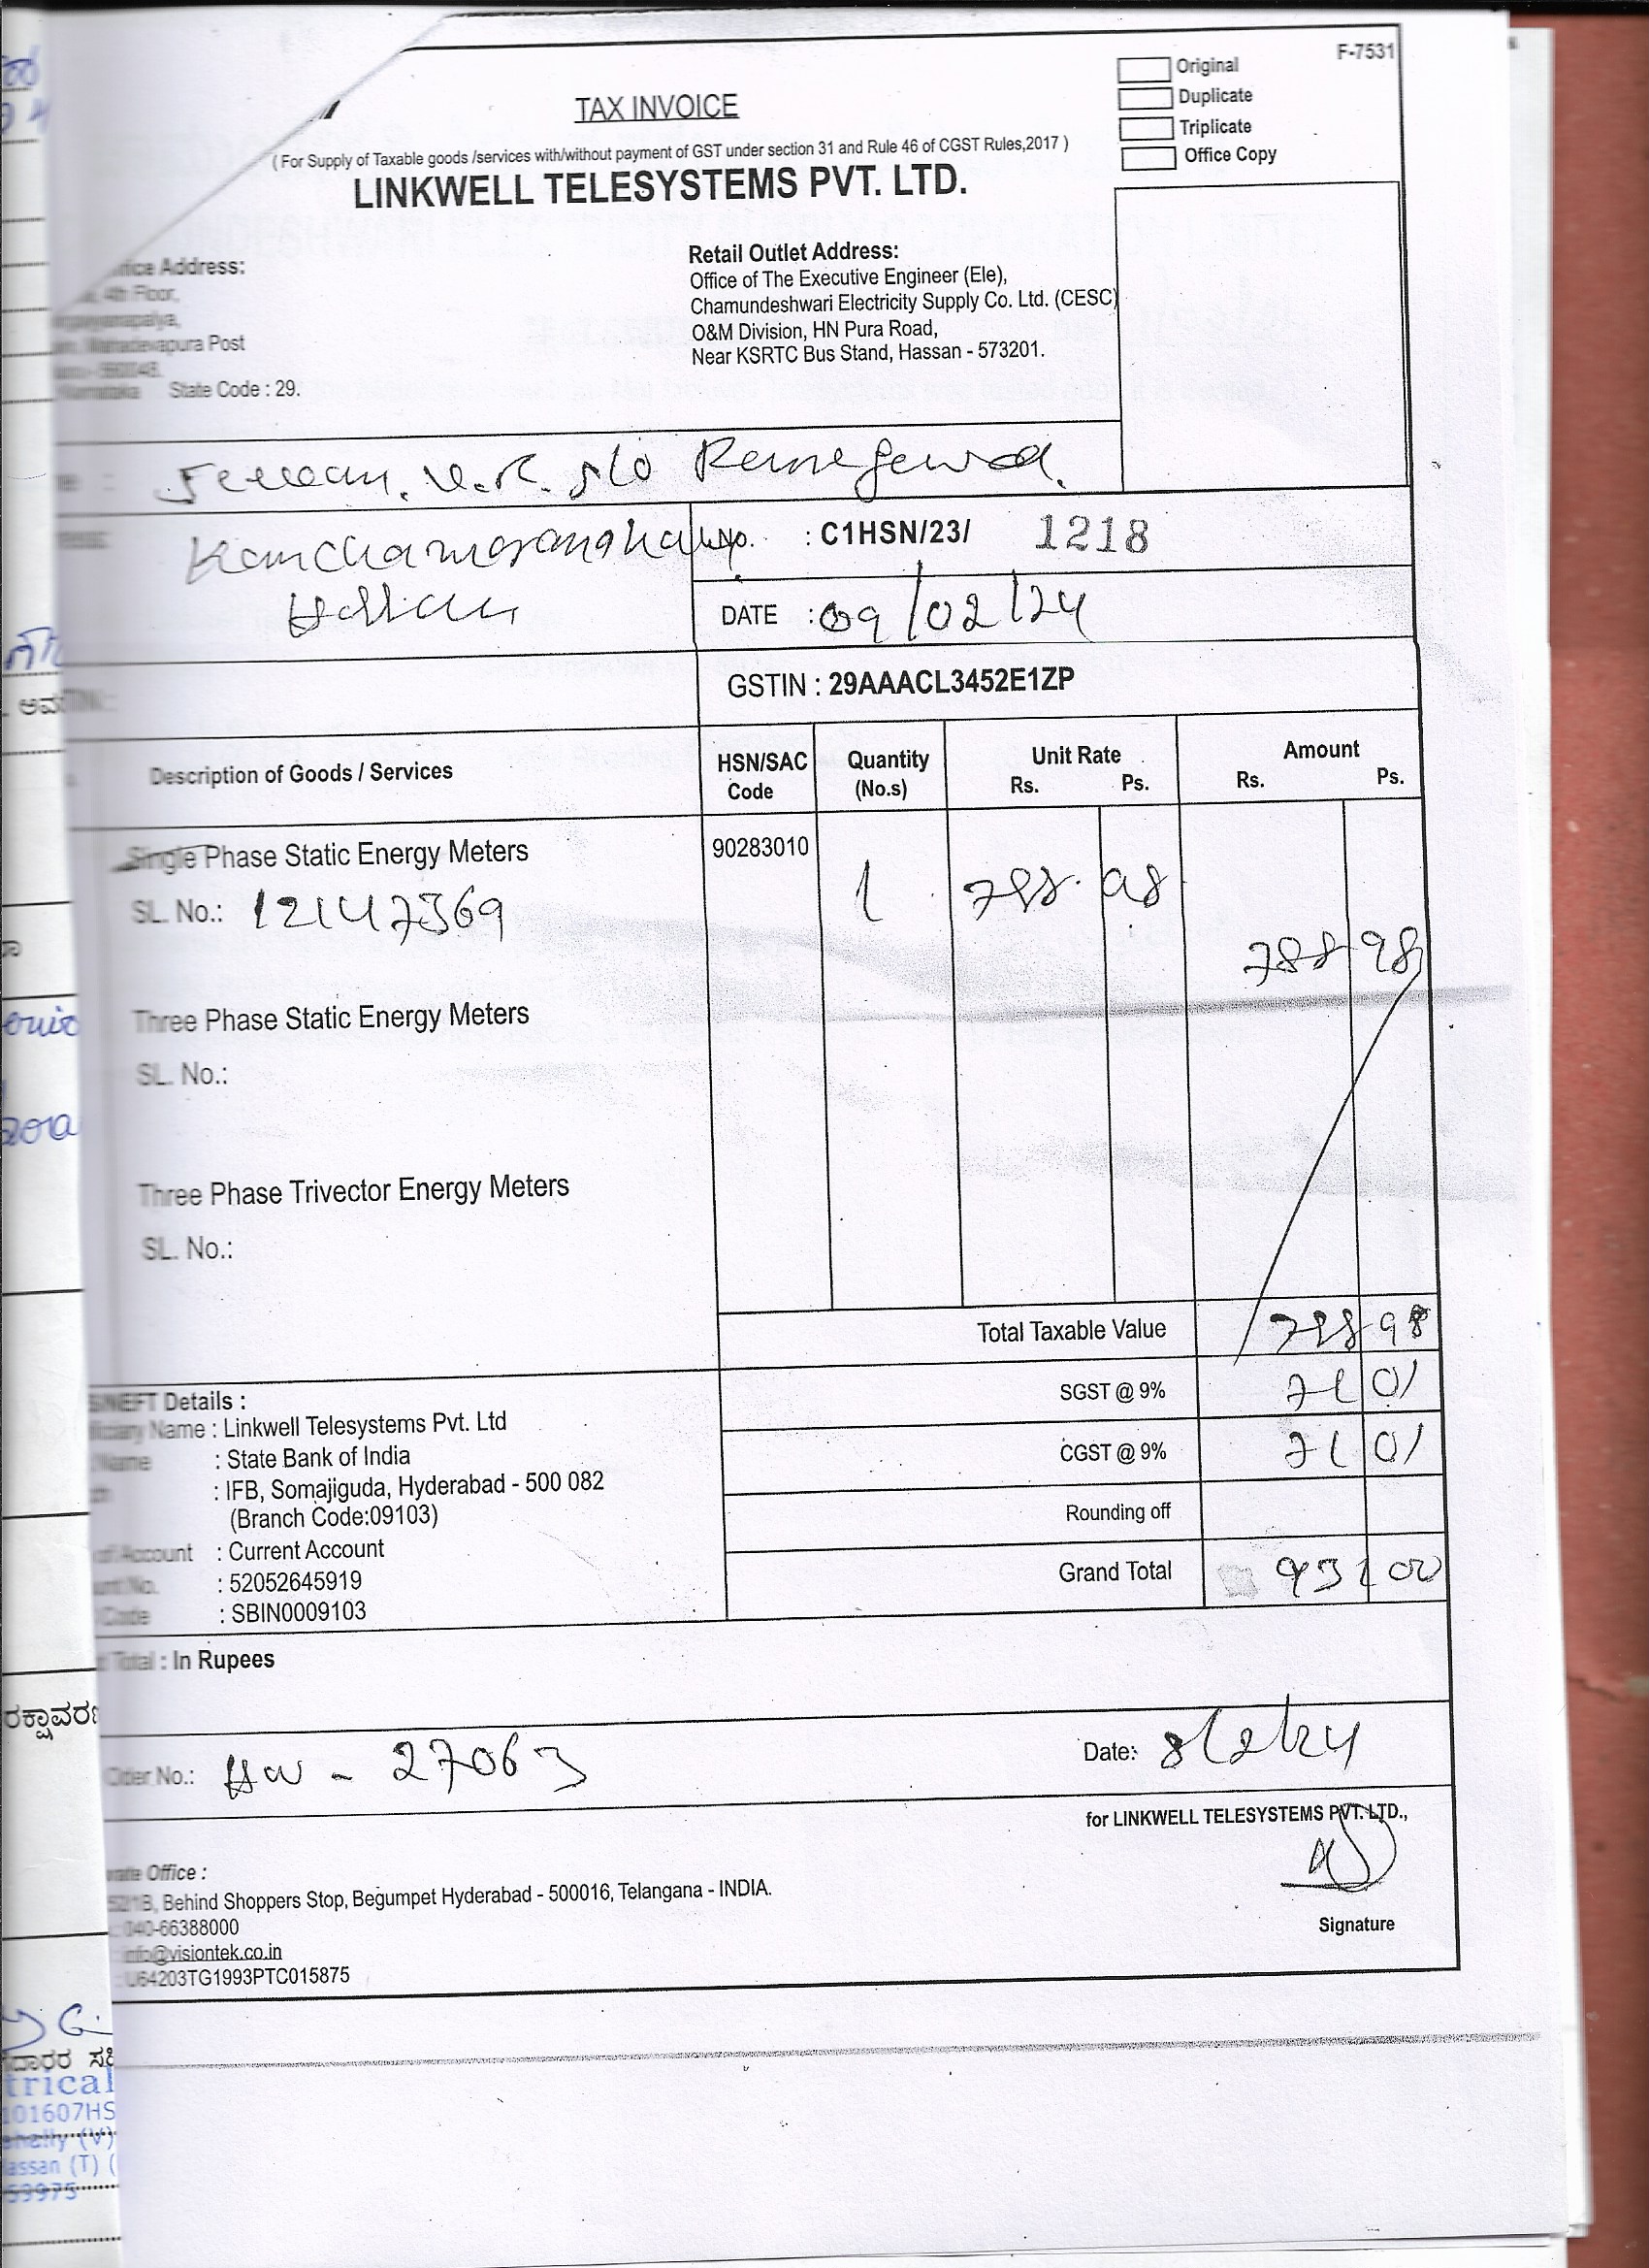 F-7531
Original
Duplicate
Triplicate
Office Copy
TAX INVOICE
( For Supply of Taxable goods /services with/without payment of GST under section 31 and Rule 46 of CGST Rules,2017 )
LINKWELL TELESYSTEMS PVT. LTD.
Address:
4th Floor,
Mahadevapura Post
State Code : 29.
Retail Outlet Address:
Office of The Executive Engineer (Ele),
Chamundeshwari Electricity Supply Co. Ltd. (CESC)
O&M Division, HN Pura Road,
Near KSRTC Bus Stand, Hassan - 573201.
s/o
: C1HSN/23/ 1218
DATE : 09/02/24
GSTIN : 29AAACL3452E1ZP
Description of Goods / Services HSN/SAC Code Quantity (No.s) Unit Rate Rs. Ps. Amount Rs. Ps.
Single Phase Static Energy Meters 90283010
SL. No.: 12147369 1 788 98
788 98
Three Phase Static Energy Meters
SL. No.:
Three Phase Trivector Energy Meters
SL. No.:
Total Taxable Value 788 98
SGST @ 9% 71 01
CGST @ 9% 71 01
Rounding off
Grand Total 931 00
Details :
Name : Linkwell Telesystems Pvt. Ltd
Name : State Bank of India
: IFB, Somajiguda, Hyderabad - 500 082
(Branch Code:09103)
of Account : Current Account
: 52052645919
Code : SBIN0009103
Total : In Rupees
Order No.: - 27063 Date: 8/2/24
for LINKWELL TELESYSTEMS PVT. LTD.,
Signature
Office :
Behind Shoppers Stop, Begumpet Hyderabad - 500016, Telangana - INDIA.
040-66388000
info@visiontek.co.in
U64203TG1993PTC015875